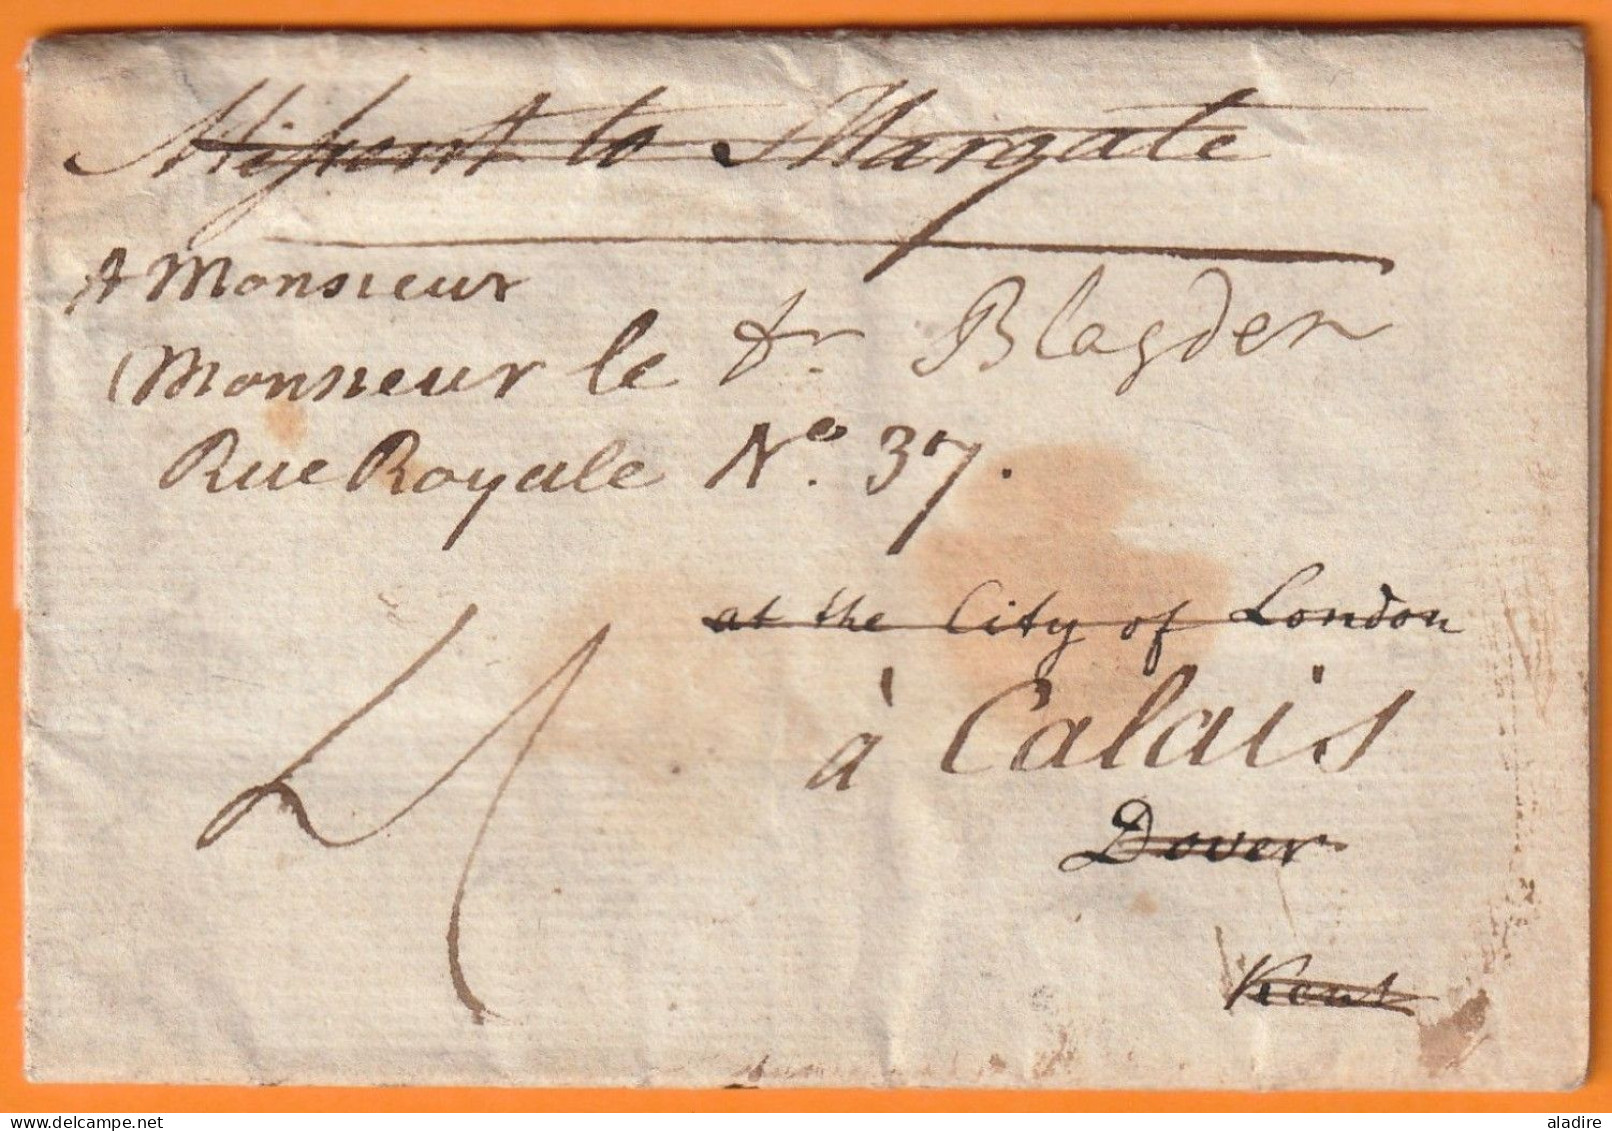 Missent to Margate
A Monsieur
Monsieur le Dr Blagden
Rue Royale No. 37.
at the City of London
à Calais
Dover
Kent
4
aladire